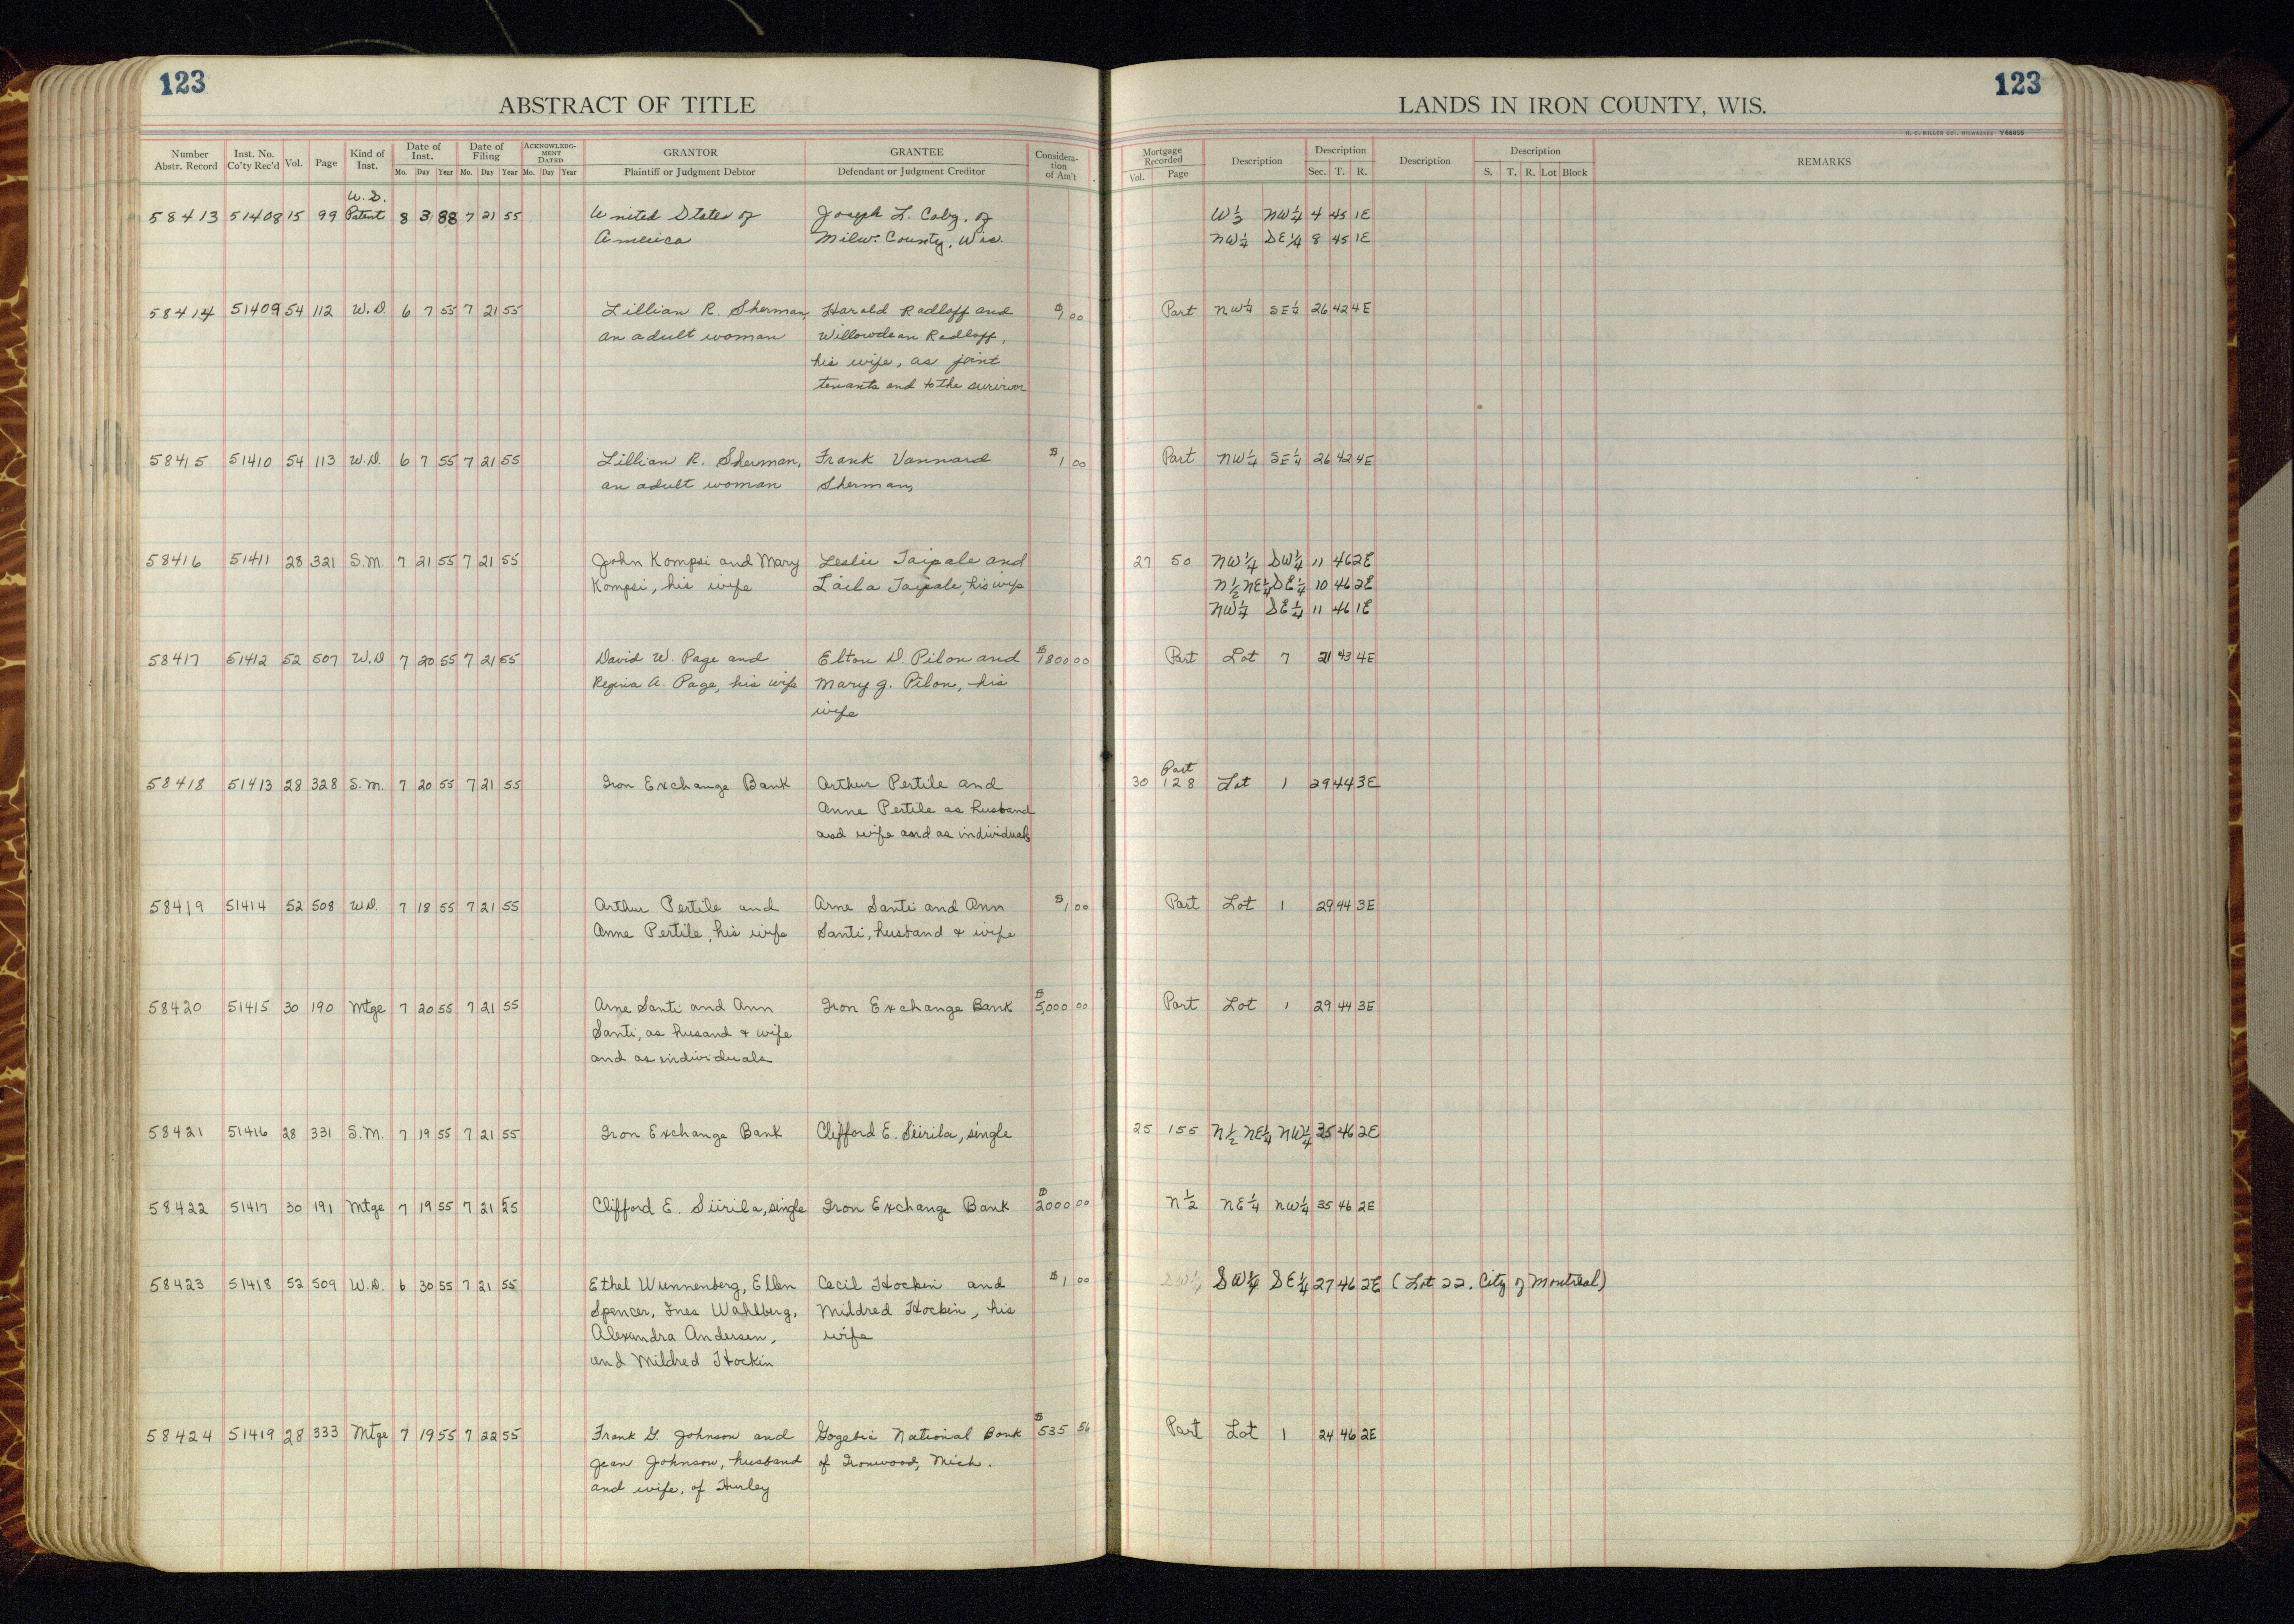 123
ABSTRACT OF TITLE
Number Abstr. Record Inst. No. Co'ty Rec'd Vol. Page Kind of Inst. Date of Inst. Mo. Day Year Date of Filing Mo. Day Year ACKNOWLEDGMENT DATED Mo. Day Year GRANTOR Plaintiff or Judgment Debtor GRANTEE Defendant or Judgment Creditor Consideration of Am't
U.S.
58413 51408 15 99 Patent 8 3 88 7 21 55 United States of Joseph L. Coby, of
America Milw. County, Wis.
58414 51409 54 112 W.D. 6 7 55 7 21 55 Lillian R. Sherman, Harold Radloff and $1 00
an adult woman Willowdean Radloff,
his wife, as joint
tenants and to the survivor
58415 51410 54 113 W.D. 6 7 55 7 21 55 Lillian R. Sherman, Frank Vannard $1 00
an adult woman Sherman,
58416 51411 28 321 S.M. 7 21 55 7 21 55 John Kompsi and Mary Leslie Taipale and
Kompsi, his wife Laila Taipale, his wife
58417 51412 52 507 W.D 7 20 55 7 21 55 David W. Page and Elton D. Pilon and $1800 00
Regina A. Page, his wife Mary J. Pilon, his
wife
58418 51413 28 328 S.M. 7 20 55 7 21 55 Iron Exchange Bank Arthur Pertile and
Anne Pertile as husband
and wife and as individuals
58419 51414 52 508 W.D. 7 18 55 7 21 55 Arthur Pertile and Arne Santi and Ann $1 00
Anne Pertile, his wife Santi, husband & wife
58420 51415 30 190 Mtge 7 20 55 7 21 55 Arne Santi and Ann Iron Exchange Bank $5,000 00
Santi, as husand & wife
and as individuals
58421 51416 28 331 S.M. 7 19 55 7 21 55 Iron Exchange Bank Clifford E. Siirila, single
58422 51417 30 191 Mtge 7 19 55 7 21 55 Clifford E. Siirila, single Iron Exchange Bank $2000 00
58423 51418 52 509 W.D. 6 30 55 7 21 55 Ethel Wunnenberg, Ellen Cecil Hockin and $1 00
Spencer, Ines Wahlberg, Mildred Hockin, his
Alexandra Andersen, wife
and Mildred Hockin
58424 51419 28 333 Mtge 7 19 55 7 22 55 Frank G Johnson and Gogebic National Bank $535 56
Jean Johnson, husband of Ironwood, Mich.
and wife, of Hurley
123
LANDS IN IRON COUNTY, WIS.
H. C. MILLER CO., MILWAUKEE Y66855
Mortgage Recorded Vol. Page Description Description Sec. T. R. Description Description S. T. R. Lot Block REMARKS
W½ NW¼ 4 45 1E
NW¼ SE¼ 8 45 1E
Part NW¼ SE¼ 26 42 4E
Part NW¼ SE¼ 26 42 4E
27 50 NW¼ SW¼ 11 46 2E
N½ NE¼ SE¼ 10 46 2E
NW¼ SE¼ 11 46 1E
Part Lot 7 21 43 4E
Part
30 128 Lot 1 29 44 3E
Part Lot 1 29 44 3E
Part Lot 1 29 44 3E
25 155 N½ NE¼ NW¼ 35 46 2E
N½ NE¼ NW¼ 35 46 2E
SW¼ SE¼ 27 46 2E (Lot 22. City of Montreal)
Part Lot 1 24 46 2E